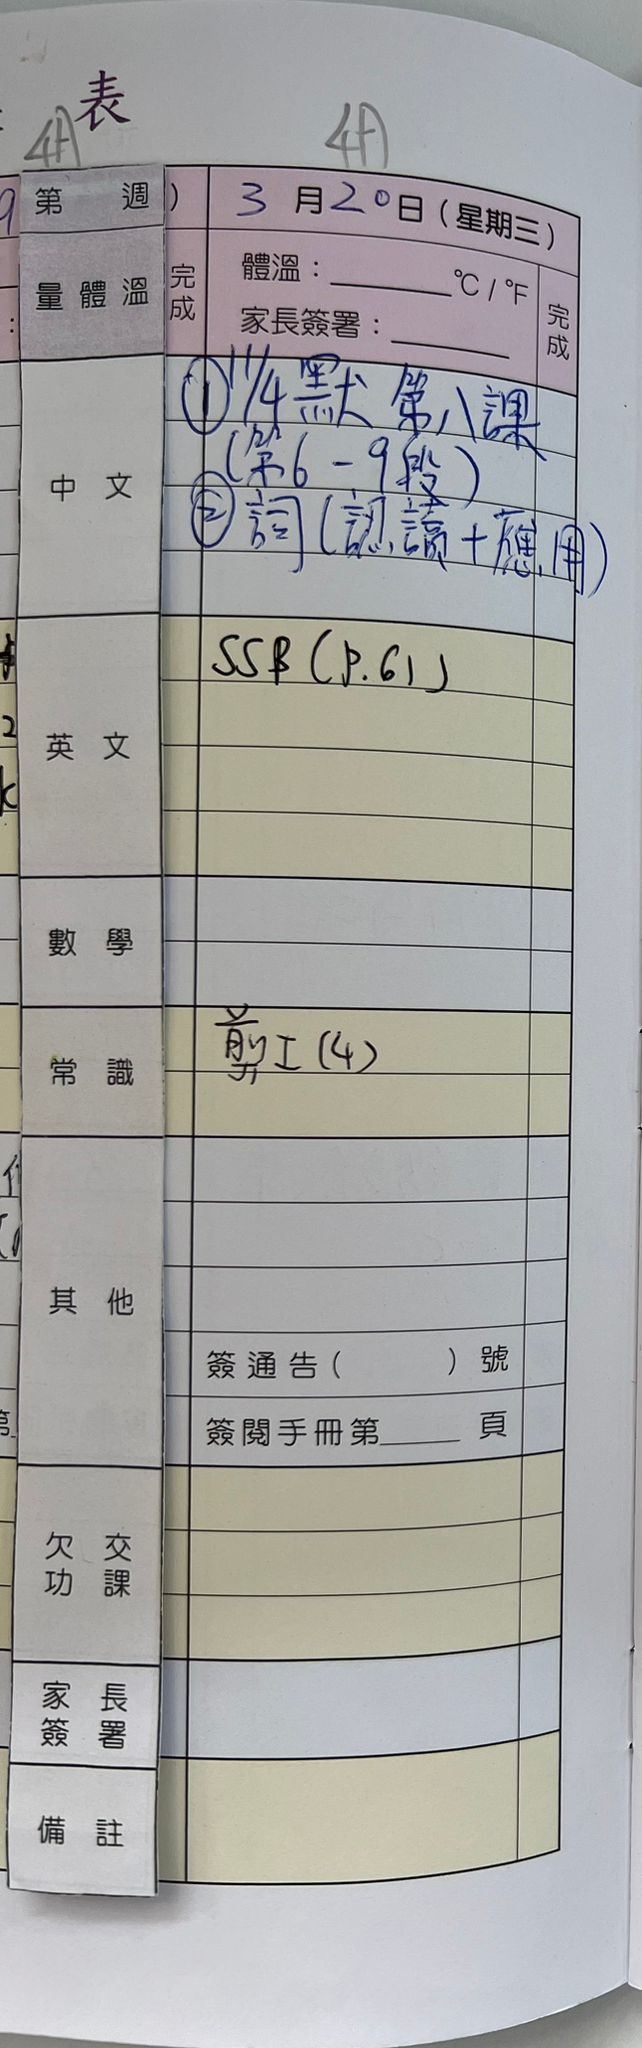 表
4A
4A
第 週
)
3月20日(星期三)
量體溫
完成
體溫:______℃/℉
家長簽署:______
完成
中文
① 11/4默 第八課
(第6-9段)
② 詞(認讀+應用)
英文
SSB (P.61)
數學
常識
剪工(4)
其他
簽通告( )號
簽閱手冊第_____頁
欠交
功課
家長
簽署
備註